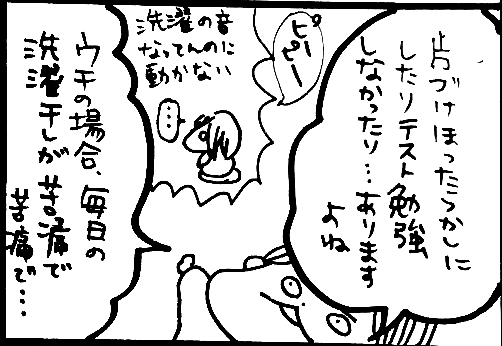 片づけほったらかしに
したりテスト勉強
しなかったり…あります
よね
ピーピー
洗濯の音
なってんのに
動かない
…
ウチの場合、毎日の
洗濯干しが苦痛で
苦痛で…